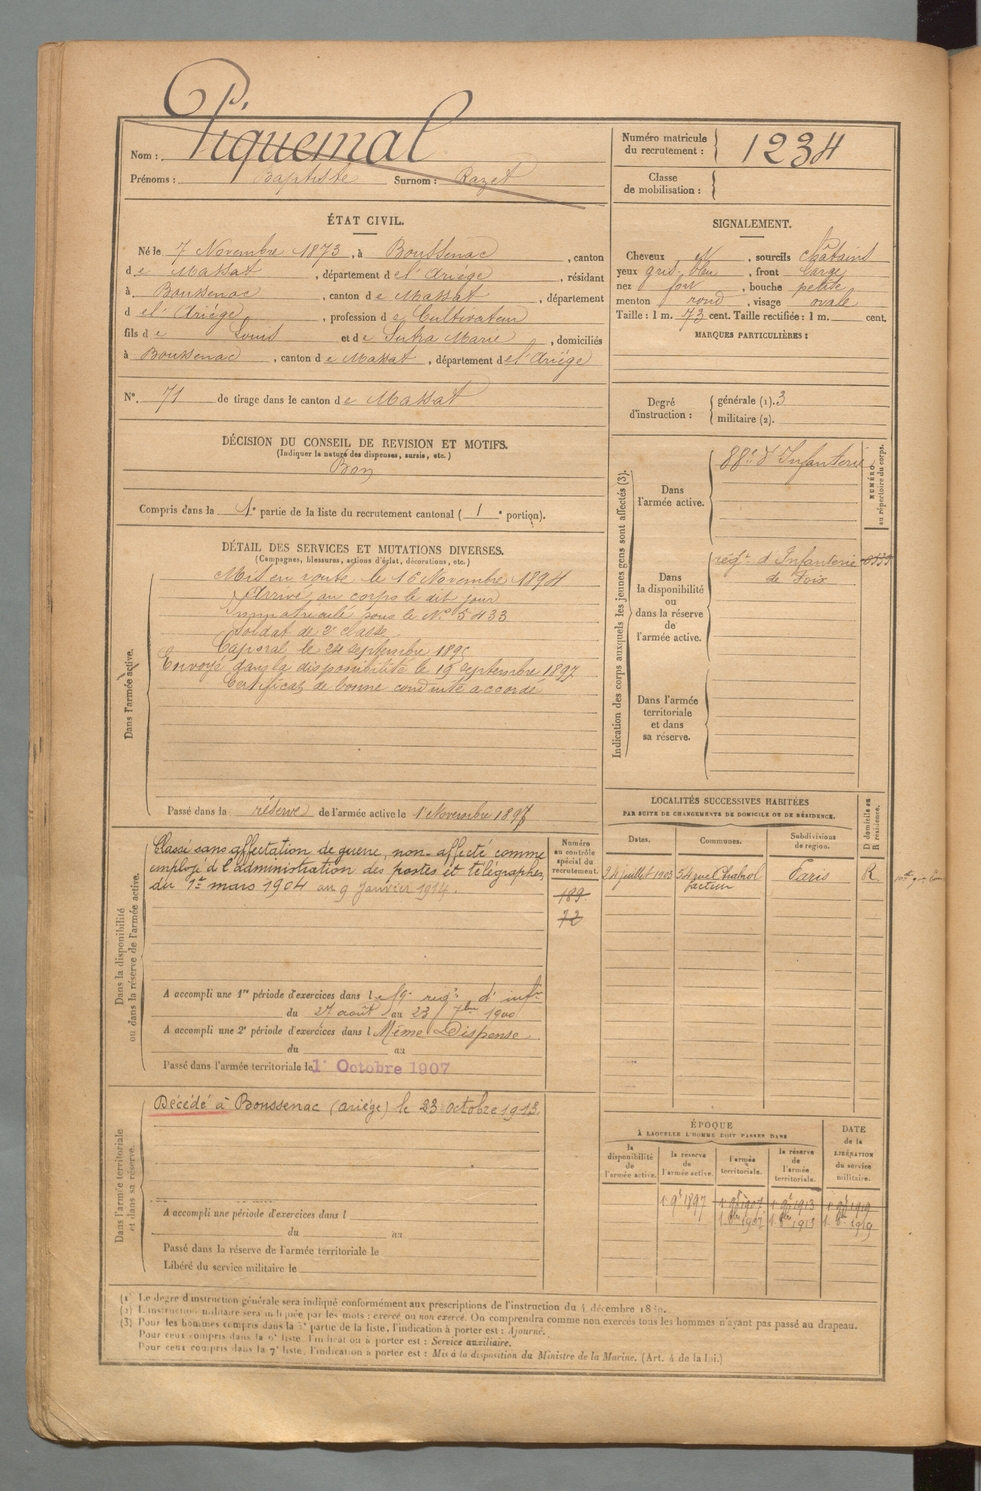 Nom : Piquemal
Prénoms : Baptiste Surnom : Razet
Numéro matricule du recrutement : 1234
Classe de mobilisation :
ÉTAT CIVIL.
Né le 7 Novembre 1873, à Boussenac, canton
de Massat, département de l'Ariège, résidant
à Boussenac, canton de Massat, département
de l'Ariège, profession de Cultivateur
fils de Louis et de Sutra Marie, domiciliés
à Boussenac, canton de Massat, département de l'Ariège
N°. 71 de tirage dans le canton de Massat
SIGNALEMENT.
Cheveux et, sourcils châtains
yeux gris bleu, front large
nez fort, bouche petite
menton rond, visage ovale
Taille : 1 m. 73 cent. Taille rectifiée : 1 m. cent.
MARQUES PARTICULIÈRES :
Degré d'instruction : générale (1). 3
militaire (2).
DÉCISION DU CONSEIL DE REVISION ET MOTIFS.
(Indiquer la nature des dispenses, sursis, etc.)
Bon
Compris dans la 1e partie de la liste du recrutement cantonal ( 1e portion).
DÉTAIL DES SERVICES ET MUTATIONS DIVERSES.
(Campagnes, blessures, actions d'éclat, décorations, etc.)
Dans l'armée active.
Mis en route le 16 Novembre 1894
Arrivé au corps le dit jour
Immatriculé sous le N° 5433
Soldat de 2e classe
Caporal le 24 septembre 1895
Envoyé dans la disponibilité le 19 septembre 1897
Certificat de bonne conduite accordé
Passé dans la réserve de l'armée active le 1er Novembre 1897
Indication des corps auxquels les jeunes gens sont affectés (3).
Dans l'armée active.
88e d'Infanterie
NUMÉRO au répertoire du corps.
Dans la disponibilité ou dans la réserve de l'armée active.
régt d'Infanterie
de Foix
Dans l'armée territoriale et dans sa réserve.
Dans la disponibilité ou dans la réserve de l'armée active.
Classé sans affectation de guerre, non-affecté comme
employé de l'administration des postes et télégraphes,
du 1er mars 1904 au 9 Janvier 1914.
Numéro au contrôle spécial du recrutement.
189
72
A accompli une 1re période d'exercices dans l 59e régt d'inf
du 27 août au 23 7bre 1900
A accompli une 2e période d'exercices dans l Même Dispense
du au
Passé dans l'armée territoriale le 1er Octobre 1907
LOCALITÉS SUCCESSIVES HABITÉES
PAR SUITE DE CHANGEMENTS DE DOMICILE OU DE RÉSIDENCE.
Dates. Communes. Subdivisions de région. D domicile ou R résidence.
24 juillet 1903 54 rue Chabrol facteur Paris R
Dans l'armée territoriale et dans sa réserve.
Décédé à Boussenac (Ariège) le 23 octobre 1913
A accompli une période d'exercices dans l
du au
Passé dans la réserve de l'armée territoriale le
Libéré du service militaire le
ÉPOQUE
À LAQUELLE L'HOMME DOIT PASSER DANS
la disponibilité de l'armée active. la réserve de l'armée active. l'armée territoriale. la réserve de l'armée territoriale. DATE de la LIBÉRATION du service militaire.
1 9e 1897 1 9e 1907 1 9e 1913 1 9e 1919
1 8bre 1907 1 8bre 1913 1 8bre 1919
(1) Le degré d'instruction générale sera indiqué conformément aux prescriptions de l'instruction du 4 décembre 1889.
(2) L'instruction militaire sera indiquée par les mots : exercé ou non exercé. On comprendra comme non exercés tous les hommes n'ayant pas passé au drapeau.
(3) Pour les hommes compris dans la 5e partie de la liste, l'indication à porter est : Ajourné.
Pour ceux compris dans la 6e liste, l'indication à porter est : Service auxiliaire.
Pour ceux compris dans la 7e liste, l'indication à porter est : Mis à la disposition du Ministre de la Marine. (Art. 4 de la loi.)